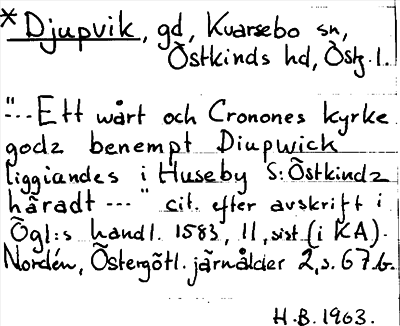 * Djupvik, gd, Kvarsebo sn,
Östkinds hd, Östg. l.
"--- Ett wårt och Cronones kyrke
godz benempt Diupwick
liggiandes i Huseby S: Östkindz
häradt ---" cit. efter avskrift i
Ögl:s handl. 1583, 11, sist (i KA).
Nordén, Östergötl. järnålder 2, s. 67 f.
H.B. 1963.